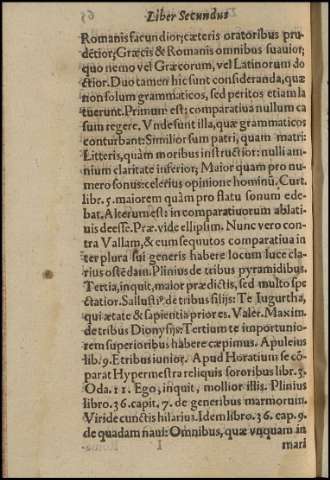 Liber Secundus
Romanis facundior; cæteris oratoribus pru-
dētior; Græcis & Romanis omnibus suauior;
quo nemo vel Græcorum, vel Latinorum do
ctior. Duo tamen hic sunt consideranda, quæ
non solum grammaticos, sed peritos etiam la
tuerunt. Primum est; comparatiua nullum ca
sum regere. Vnde sunt illa, quæ grammaticos
conturbant: Similior sum patri, quam matri:
Litteris, quàm moribus instructior: nulli am-
nium claritate inferior; Maior quam pro nu-
mero sonus: celerius opinione hominū. Curt.
libr. 5. maiorem quàm pro statu sonum ede-
bat. Alterum est: in comparatiuorum ablati-
uis deesse. Præ. vide ellipsim. Nunc vero con-
tra Vallam, & eum sequutos comparatiua in
ter plura sui generis habere locum luce cla-
rius ostēdam. Plinius de tribus pyramidibus.
Tertia, inquit, maior prædictis, sed multo spe
ctatior. Sallusti⁹ de tribus filijs: Te Iugurtha,
qui ætate & sapientia prior es. Valer. Maxim.
de tribus Dionysijs: Tertium te importunio-
rem superioribus habere cæpimus. Apuleius
lib. 9. E tribus iunior. Apud Horatium se cō-
parat Hypermestra reliquis sororibus libr. 3.
Oda. 11. Ego, inquit, mollior illis. Plinius
libro. 36. capit. 7. de generibus marmorum.
Viride cunctis hilarius. Idem libro. 36. cap. 9.
de quadam naui: Omnibus, quæ vnquam in
I mari